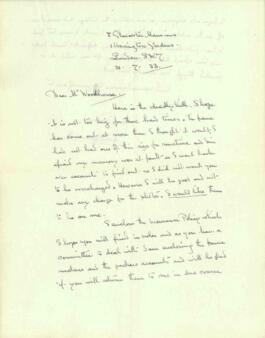 Gardens
London S.W.7
Dear Mr Woodhouse
Here is the deadly bill. I hope
it is not too big for these hard times. The frame
has come out at more than I thought it would. I
had not had one of this size for sometime and am
afraid my memory was at fault so I sent for his
own accounts to find out as I did not want you
to be overcharged. However I will be good and not
make any charge for the photos, I would like them
to be on me.
I enclose the Insurance Policy which
I hope you will find in order and as you have a
committee to deal with I am enclosing the frame
makers and the packers accounts and will be glad
if you will return them to me in due course